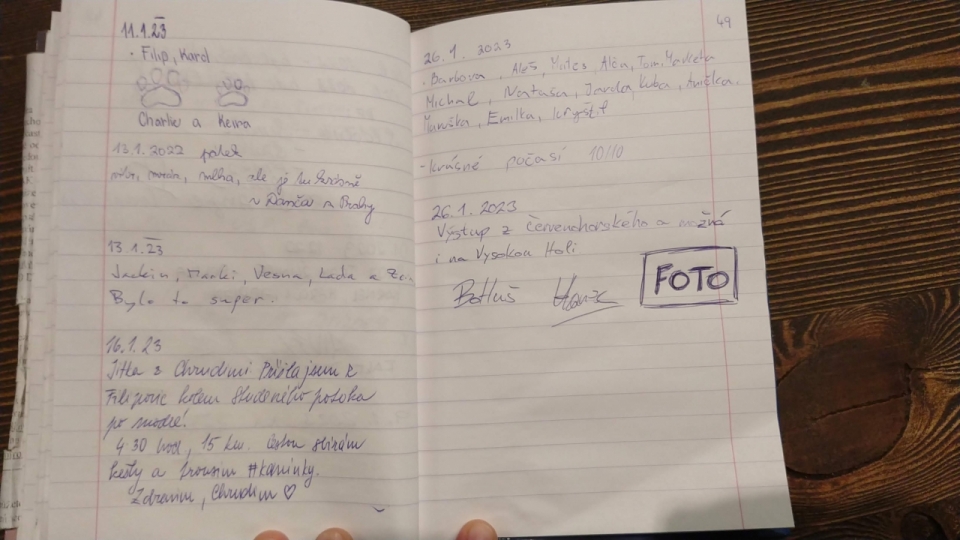 11.1.23
· Filip, Karol
Charlie a Keira
13.1.2022 pátek
mlha, je tu krásně
z Prahy
13.1.23
Vesna, Lada a
Bylo to super.
16.1.23
Jitka z Chrudimi Přišla jsem z
Filipovic kolem Studeného potoka
po modré!
4 30 hod, 15 km. Cestou sbírám
kešky a #kaminky.
Zdravím, Chrudim ♡
49
26.1. 2023
· Barbora, Aleš, Mates, Alča, Tom, Markéta
Michal, Nataša, Jarda, Kuba, Anička,
Maruška, Emilka, Kryštof
- krásné počasí 10/10
26.1.2023
Výstup z červenohorského a možná
i na Vysokou Holi
FOTO